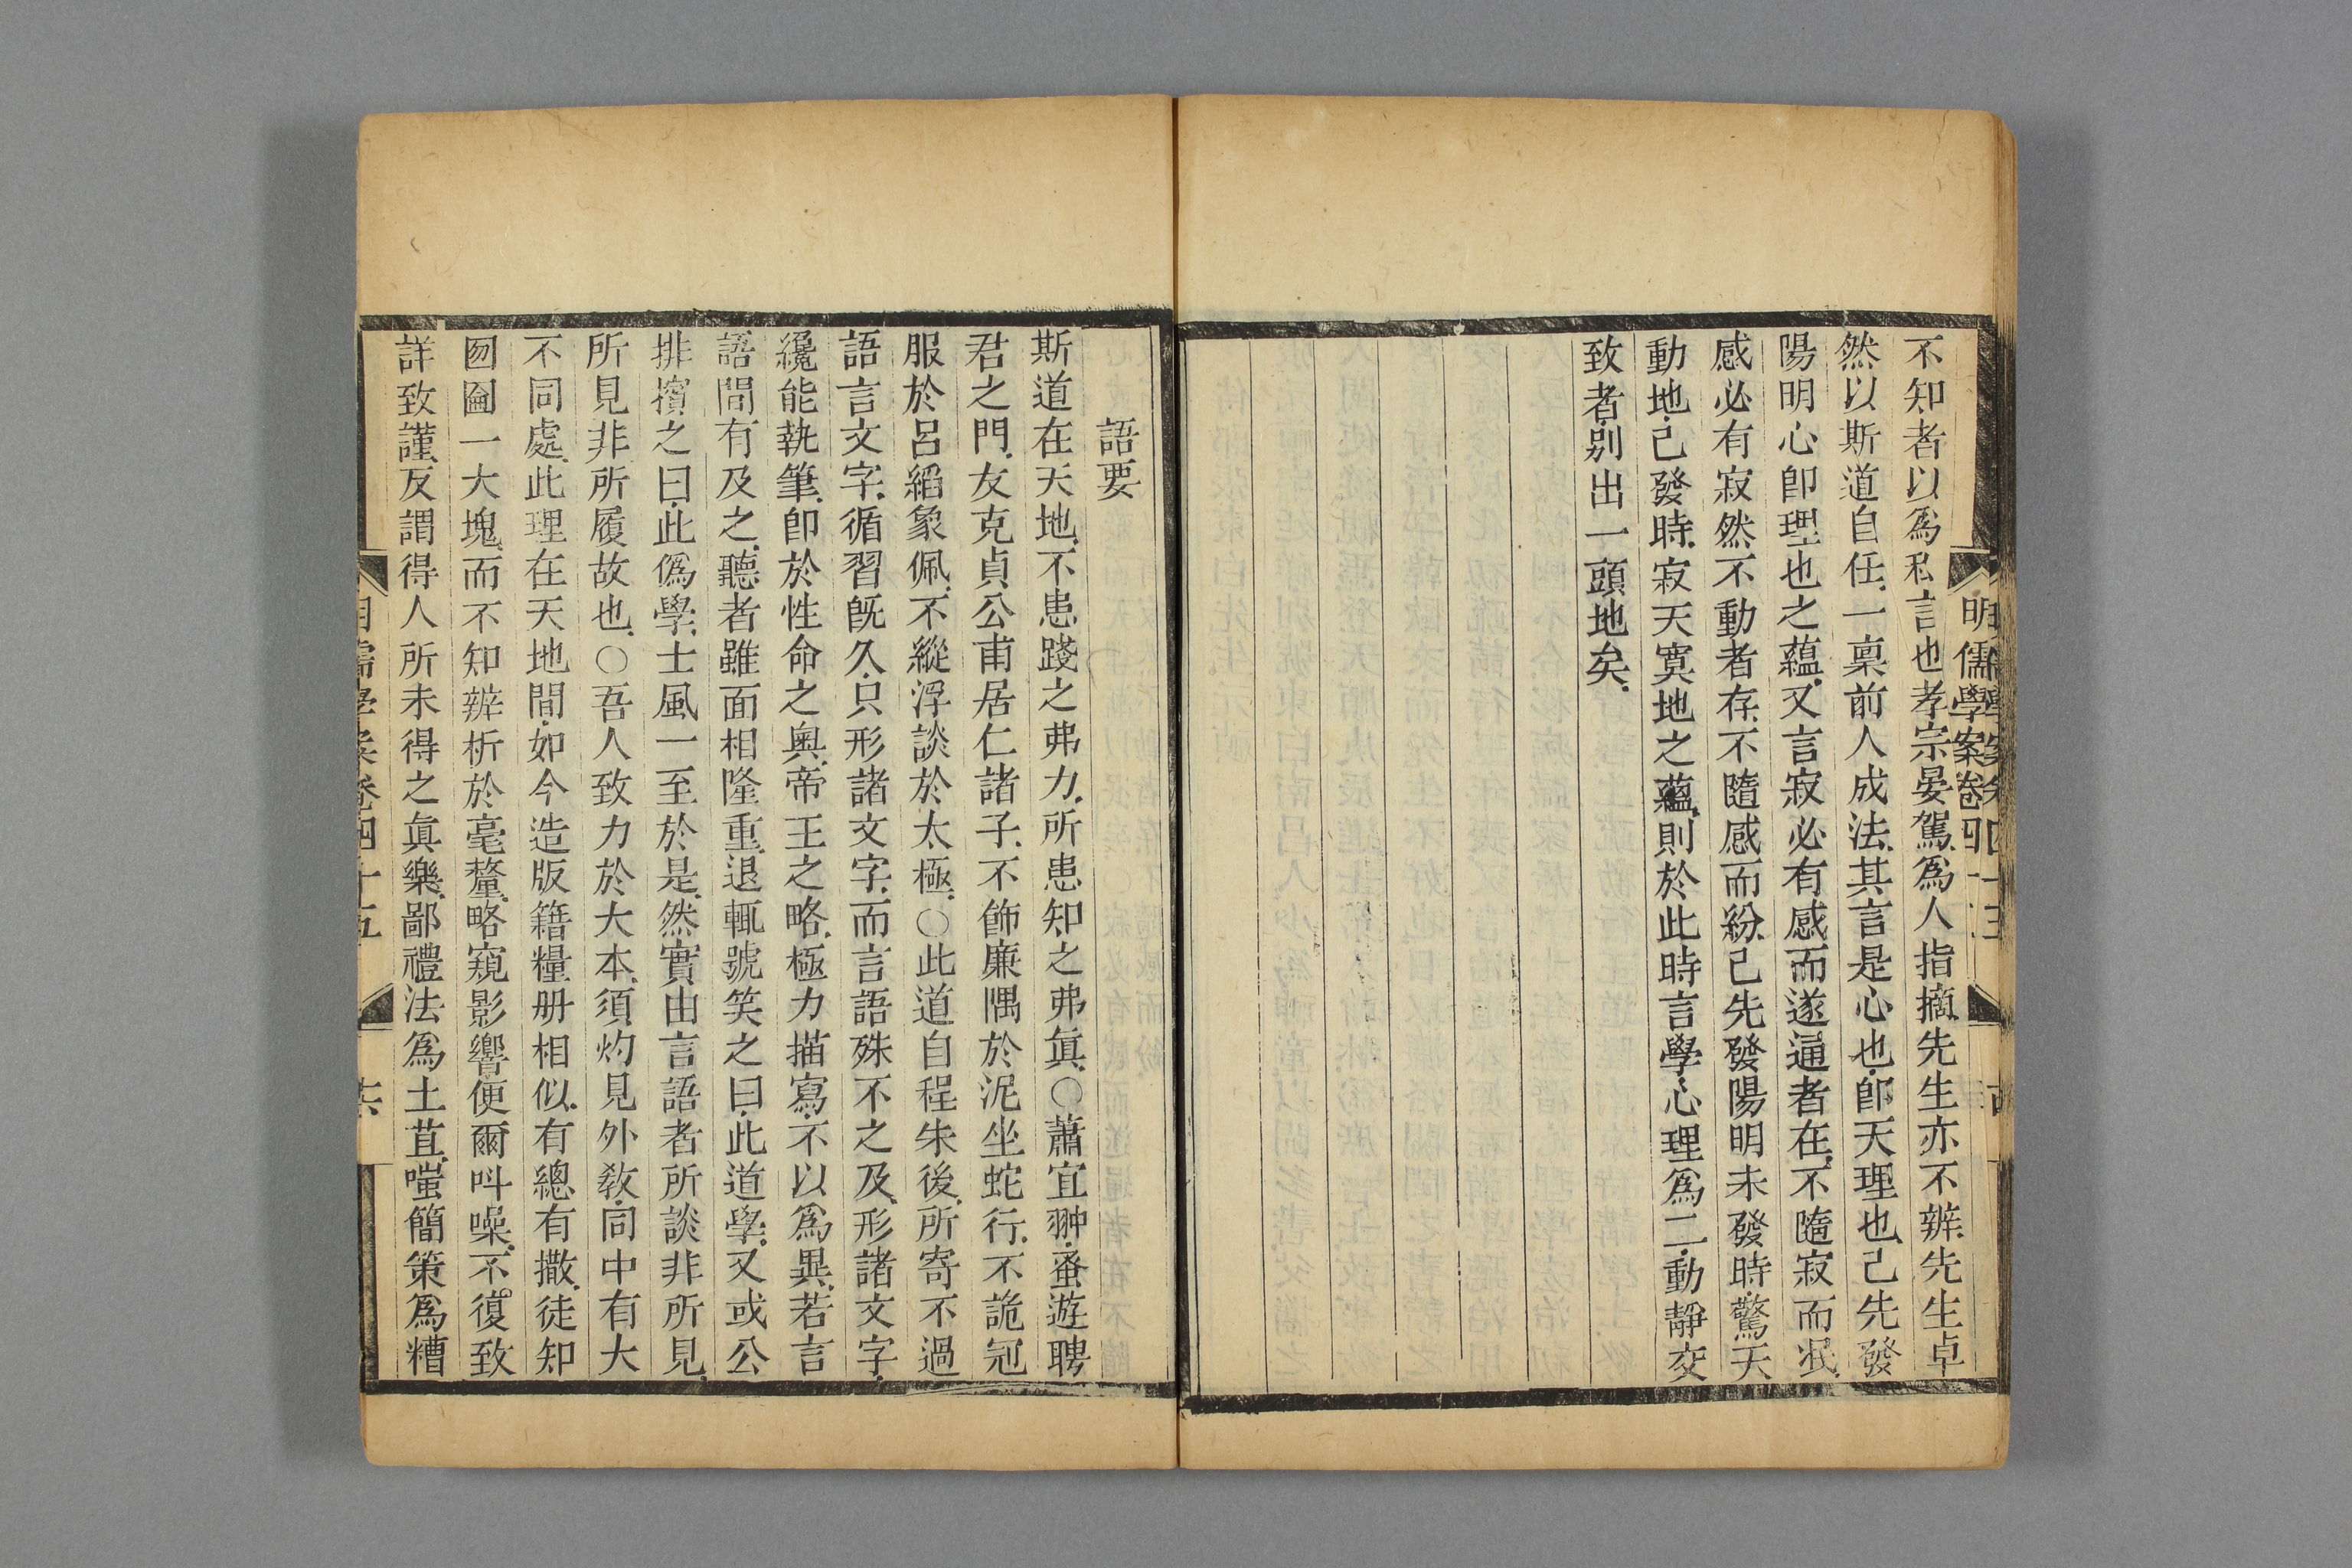 明儒學案卷四十五
不知者以爲私言也孝宗晏駕爲人指摘先生亦不辨先生卓
然以斯道自任一稟前人成法其言是心也卽天理也已先發
陽明心卽理也之蘊又言寂必有感而遂通者在不隨寂而泯
感必有寂然不動者存不隨感而紛已先發陽明未發時驚天
動地已發時寂天寞地之蘊則於此時言學心理爲二動靜交
致者別出一頭地矣
語要
斯道在天地不患踐之弗力所患知之弗眞○蕭宜翀蚤遊聘
君之門友克貞公甫居仁諸子不飾廉隅於泥坐蛇行不詭冠
服於呂縚象佩不縱浮談於太極○此道自程朱後所寄不過
語言文字循習旣久只形諸文字而言語殊不之及形諸文字
纔能執筆卽於性命之奧帝王之略極力描寫不以爲異若言
語間有及之聽者雖面相隆重退輒號笑之曰此道學又或公
排擯之曰此僞學士風一至於是然實由言語者所談非所見
所見非所履故也○吾人致力於大本須灼見外敎同中有大
不同處此理在天地間如今造版籍糧册相似有總有撒徒知
囫圇一大塊而不知辨析於毫釐略窺影響便爾呌噪不復致
詳致謹反謂得人所未得之眞樂鄙禮法爲土苴嗤簡策爲糟
明儒學案卷四十五